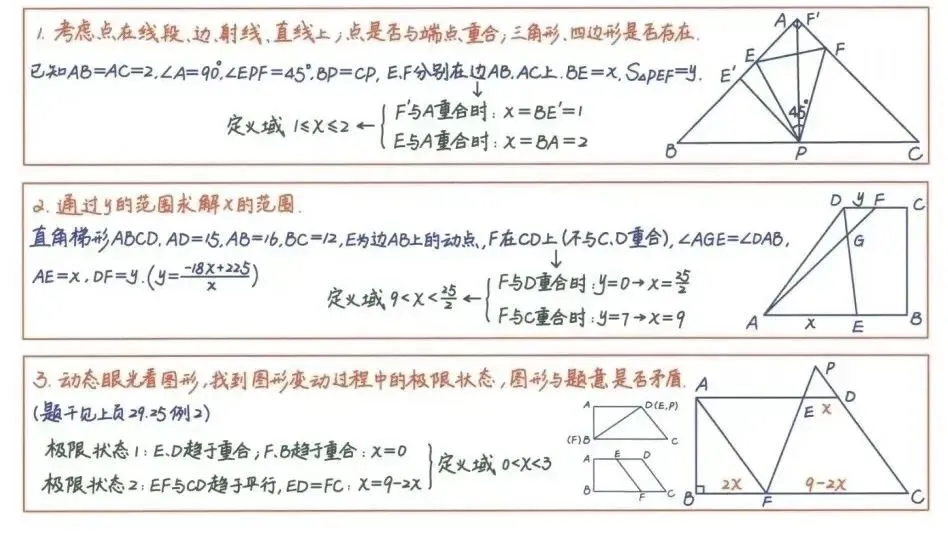 1. 考虑点在线段、边、射线、直线上；点是否与端点重合；三角形、四边形是否存在.
已知AB=AC=2,∠A=90°,∠EPF=45°,BP=CP, E,F分别在边AB,AC上. BE=x, S△PEF=y.
定义域 1≤x≤2 ← { F'与A重合时: x=BE'=1
E与A重合时: x=BA=2
A F'
E F
E'
45°
B P C
2. 通过y的范围求解x的范围.
直角梯形ABCD, AD=15, AB=16, BC=12, E为边AB上的动点, F在CD上(不与C、D重合), ∠AGE=∠DAB,
AE=x, DF=y. (y=\frac{-18x+225}{x})
定义域 9<x<\frac{25}{2} ← { F与D重合时: y=0→x=\frac{25}{2}
F与C重合时: y=7→x=9
D y F C
G
A x E B
3. 动态眼光看图形, 找到图形变动过程中的极限状态, 图形与题意是否矛盾.
(题干见上页29.25例2)
极限状态1: E、D趋于重合; F、B趋于重合: x=0
极限状态2: EF与CD趋于平行, ED=FC: x=9-2x
} 定义域 0<x<3
A D(E,P)
(F)B C
A E D
B F C
P
A E x D
B 2x F 9-2x C